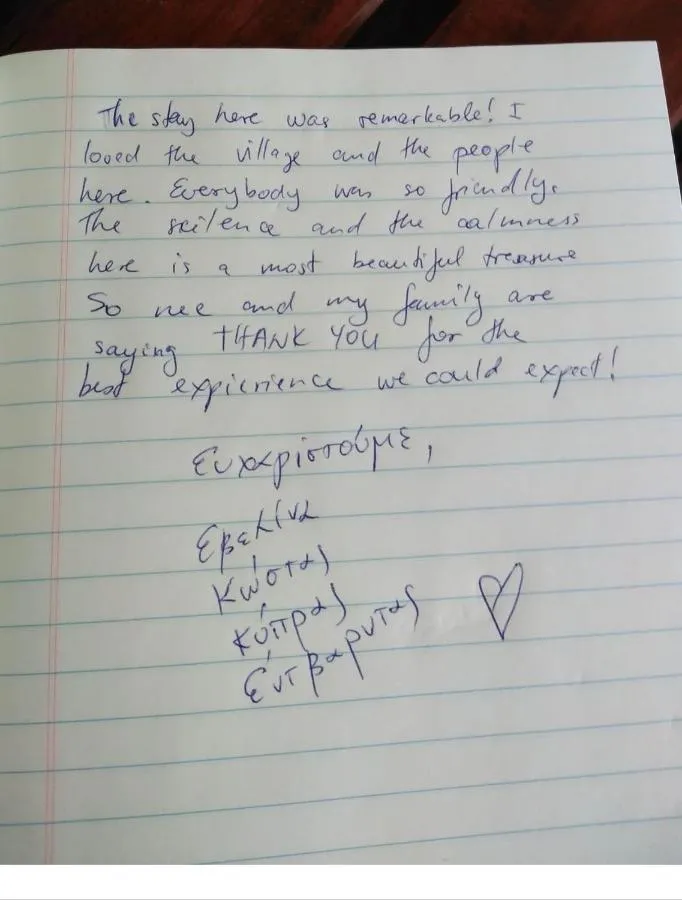 The stay here was remarkable! I
loved the village and the people
here. Everybody was so friendly.
The scilence and the calmness
here is a most beautiful treasure
So mee and my family are
saying THANK YOU for the
best expierience we could expect!
Ευχαριστούμε,
Εβελίνα
Κώστας
Κύπρας
Έντβαρντας